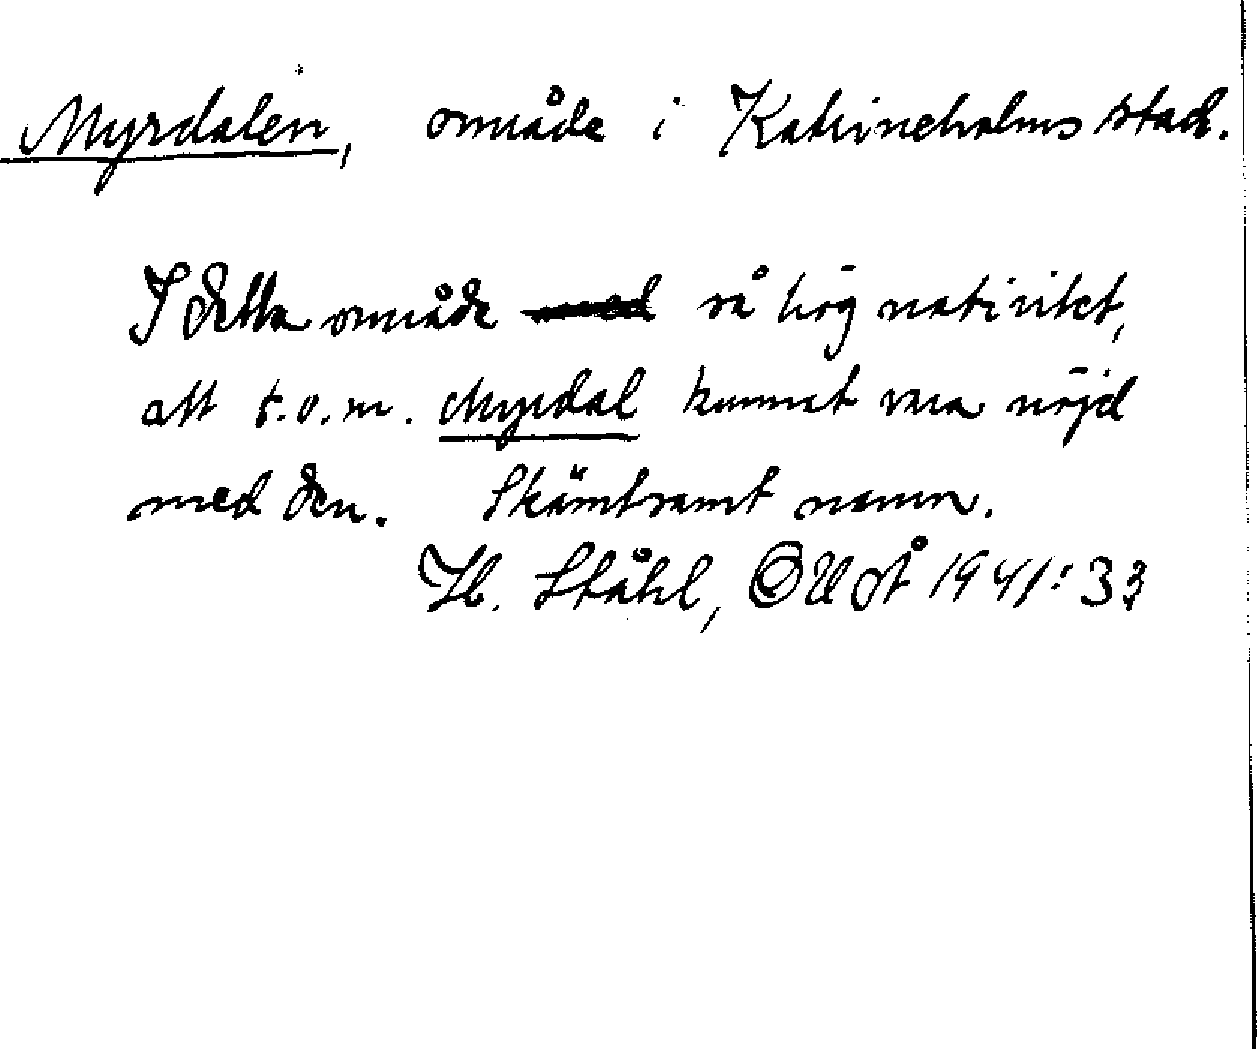 Myrdalen, område i Katrineholms stad.
I detta område så hög nativitet,
att t.o.m. Myrdal kunnat vara nöjd
med den. Skämtsamt namn.
H. Ståhl, OUÅ 1941: 33